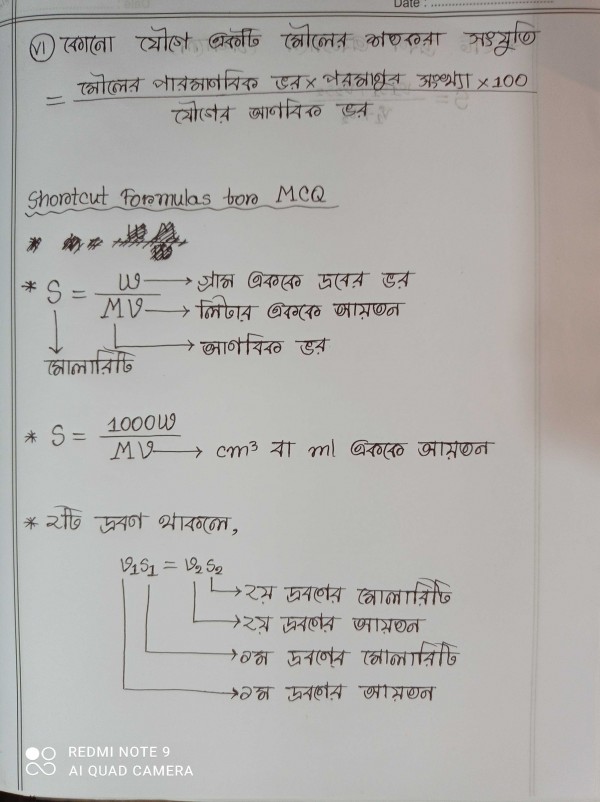 Date :
(VI) কোনো যৌগে একটি মৌলের শতকরা সংযুতি
= মৌলের পারমাণবিক ভর × পরমাণুর সংখ্যা × 100
যৌগের আণবিক ভর
Shortcut Formulas for MCQ
* S = W → গ্রাম এককে দ্রবের ভর
MV → লিটার এককে আয়তন
→ আণবিক ভর
মোলারিটি
* S = 1000W
MV → cm³ বা ml এককে আয়তন
* ২টি দ্রবণ থাকলে,
V₁S₁ = V₂S₂
→ ২য় দ্রবণের মোলারিটি
→ ২য় দ্রবণের আয়তন
→ ১ম দ্রবণের মোলারিটি
→ ১ম দ্রবণের আয়তন
REDMI NOTE 9
AI QUAD CAMERA